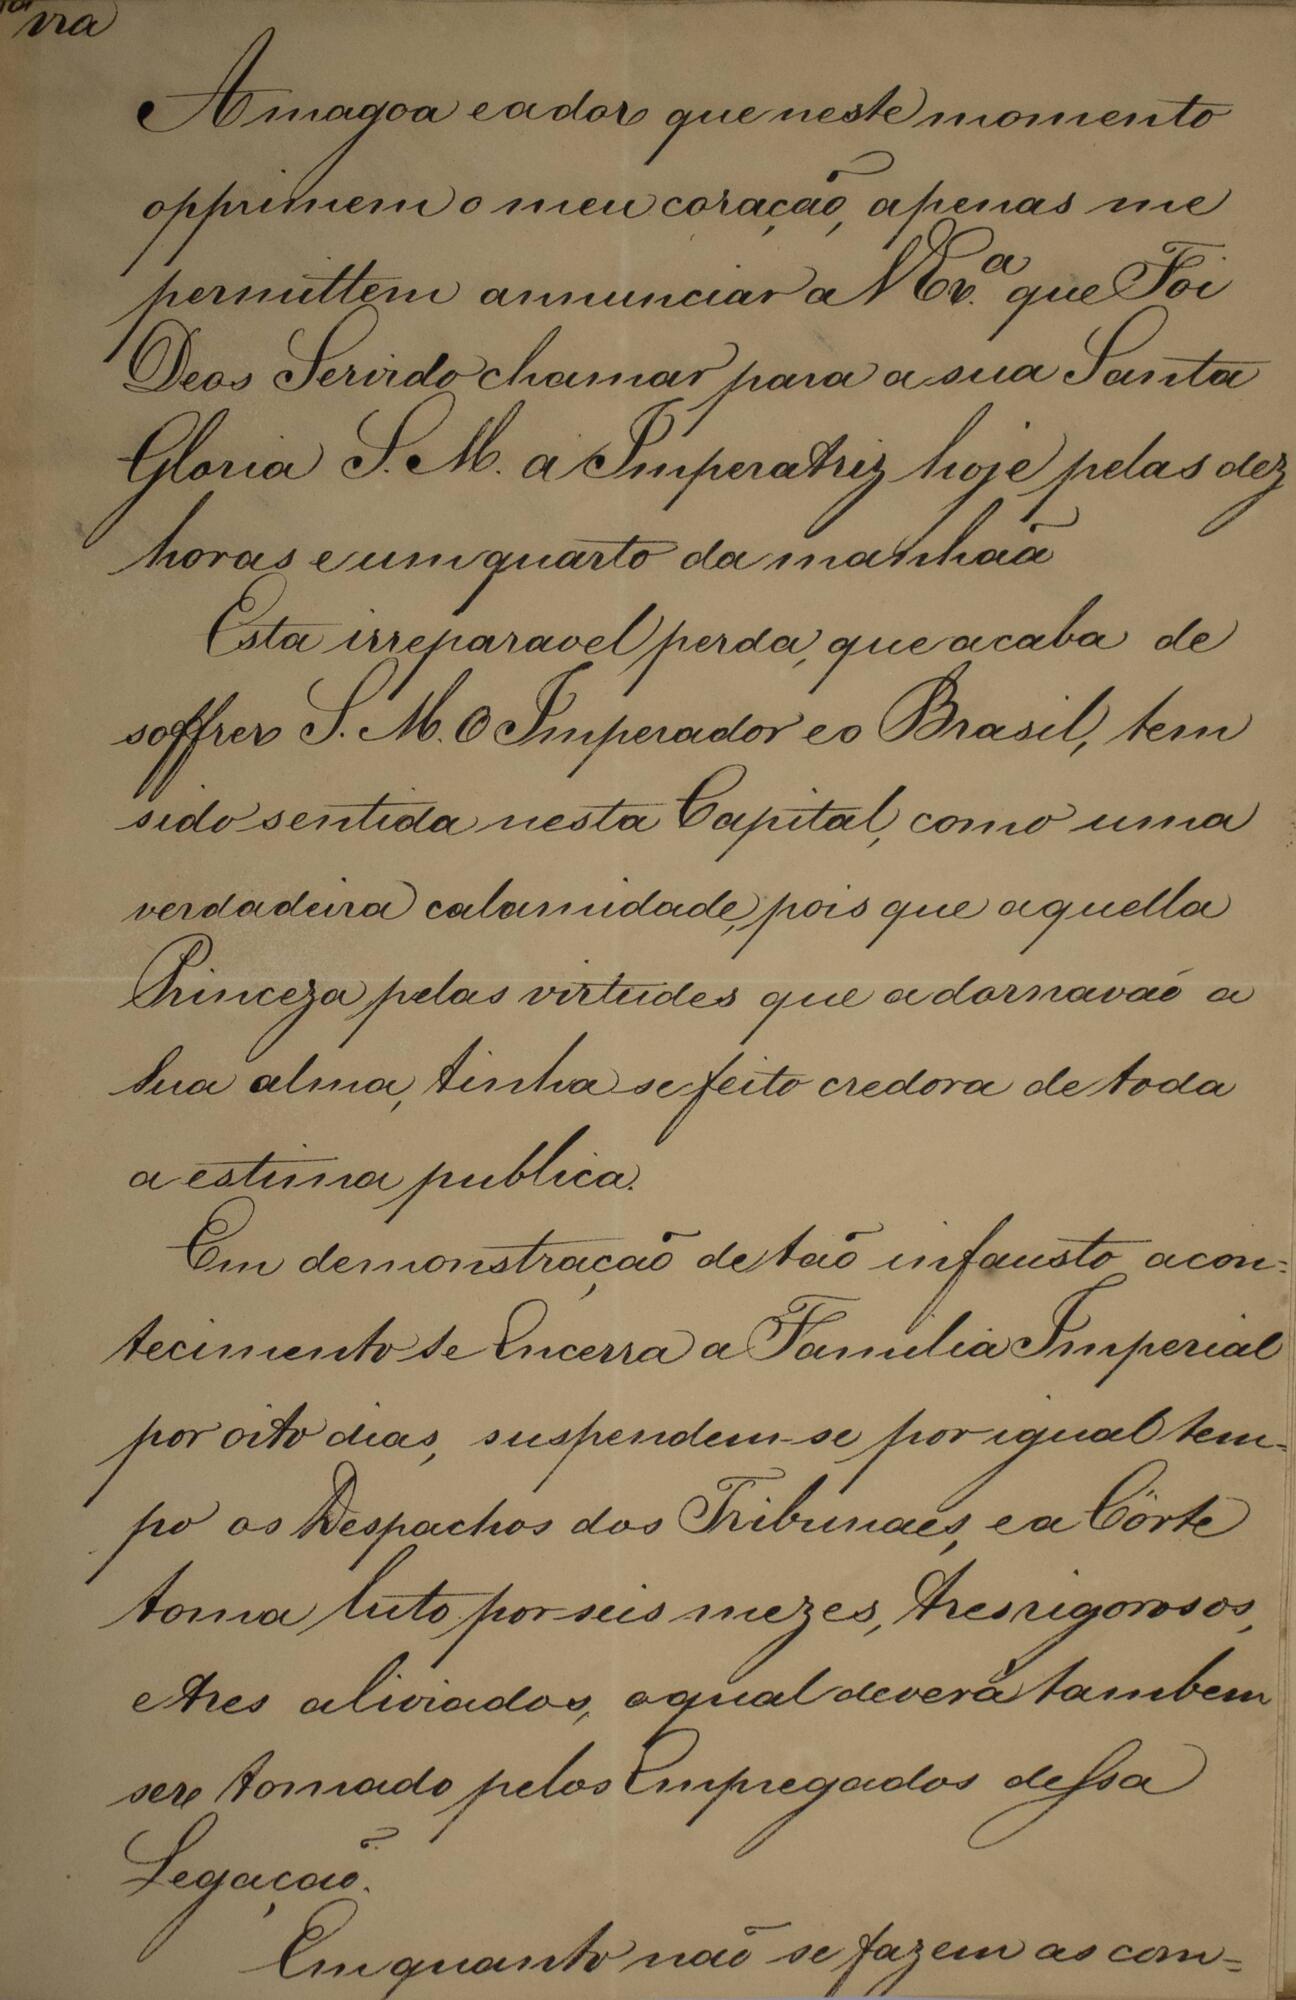 via
A magoa e a dor que neste momento
opprimem o meu coração, apenas me
permittem annunciar a V Ex.ª que Foi
Deos Servido chamar para a sua Santa
Gloria S. M. a Imperatriz hoje pelas dez
horas e um quarto da manhãa
Esta irreparavel perda, que acaba de
soffrer S. M. O Imperador e o Brasil, tem
sido sentida nesta Capital, como uma
verdadeira calamidade, pois que aquella
Princeza pelas virtudes que adornavaõ a
Sua alma, tinha se feito credora de toda
a estima publica.
Em demonstração de taõ infausto acon=
tecimento se Encerra a Familia Imperial
por oito dias, suspendem-se por igual tem=
po os Despachos dos Tribunaes, e a Côrte
toma luto por seis mezes, tres rigorosos,
e tres aliviados, o qual deverá tambem
ser tomado pelos Empregados dessa
Legaçaõ.
Em quanto naõ se fazem as com=